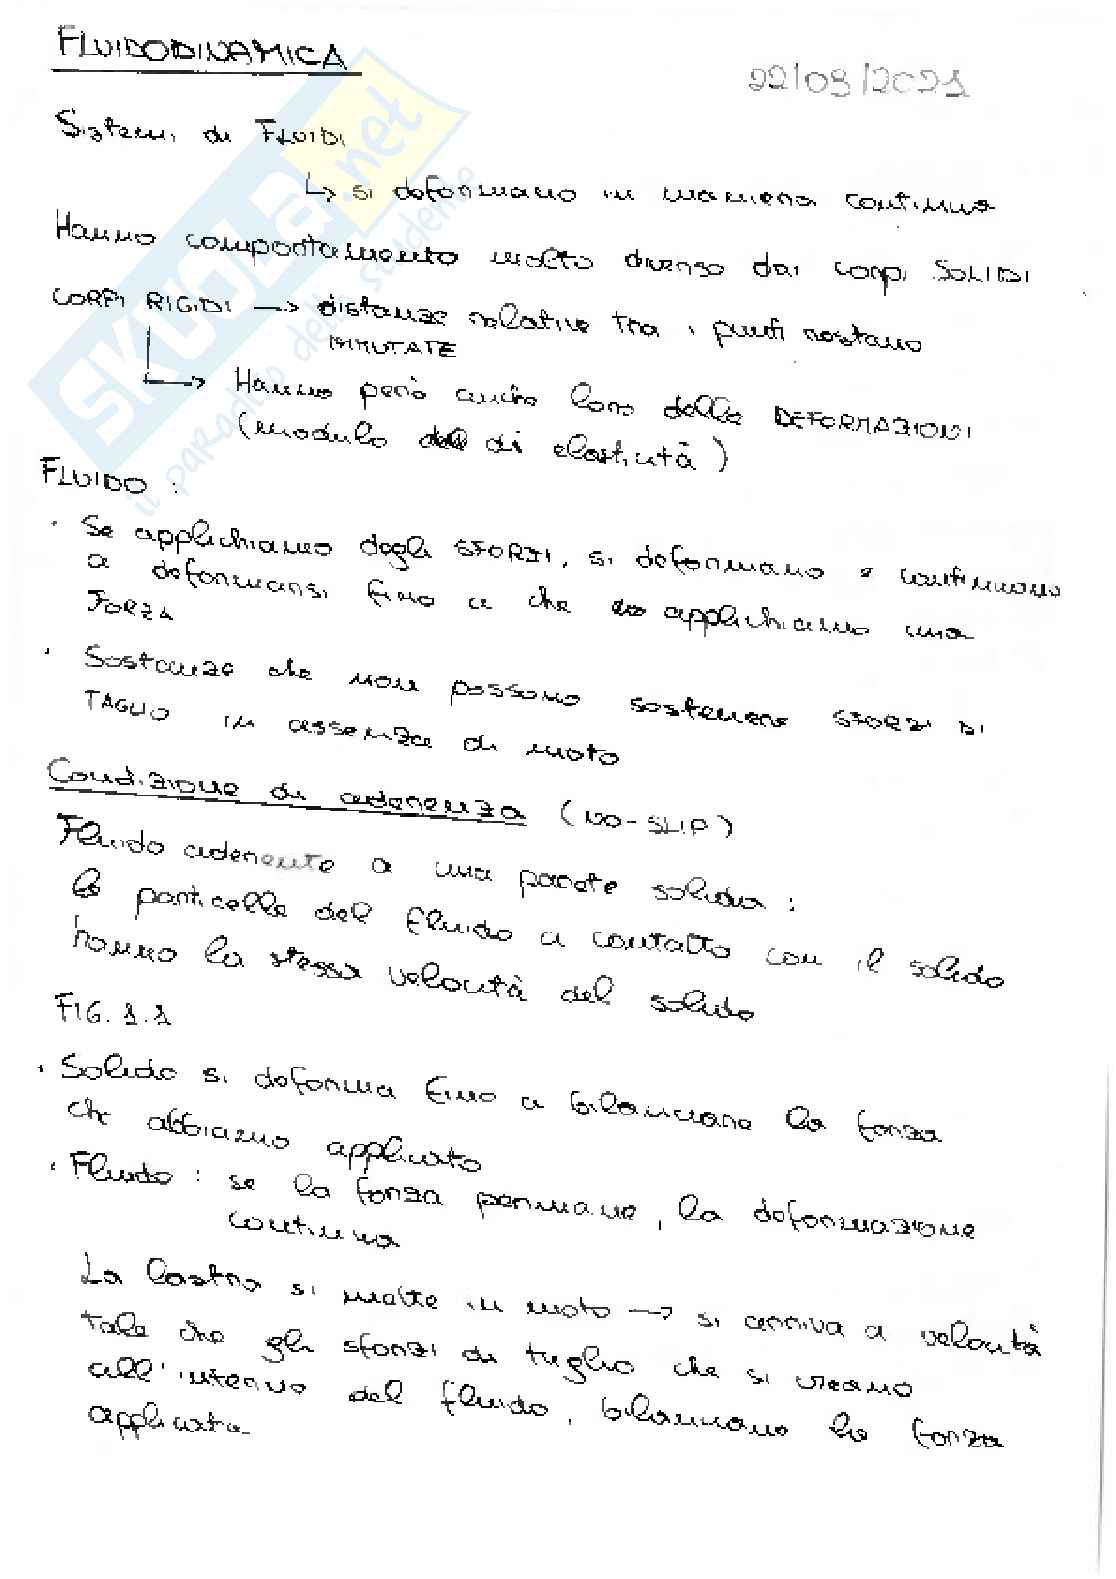 FLUIDODINAMICA
22/09/2021
Sistemi di FLUIDI
↳ si deformano in maniera continua
Hanno comportamento molto diverso dai corpi SOLIDI
CORPI RIGIDI → distanze relative tra i punti restano
IMMUTATE
↳ Hanno però anche loro delle DEFORMAZIONI
(modulo di elasticità)
FLUIDO :
· Se applichiamo degli SFORZI, si deformano e continuano
a deformarsi fino a che applichiamo una
FORZA
· Sostanze che non possono sostenere SFORZI DI
TAGLIO in assenza di moto
Condizione di aderenza (NO-SLIP)
Fluido aderente a una parete solida :
le particelle del fluido a contatto con il solido
hanno la stessa velocità del solido
FIG. 1.1
· Solido si deforma fino a bilanciare la forza
che abbiamo applicato
· Fluido : se la forza permane, la deformazione
continua
La lastra si mette in moto → si arriva a velocità
tale che gli sforzi di taglio che si creano
all'interno del fluido, bilanciano la forza
applicata
SKUOLA.net
il paradiso dello studente